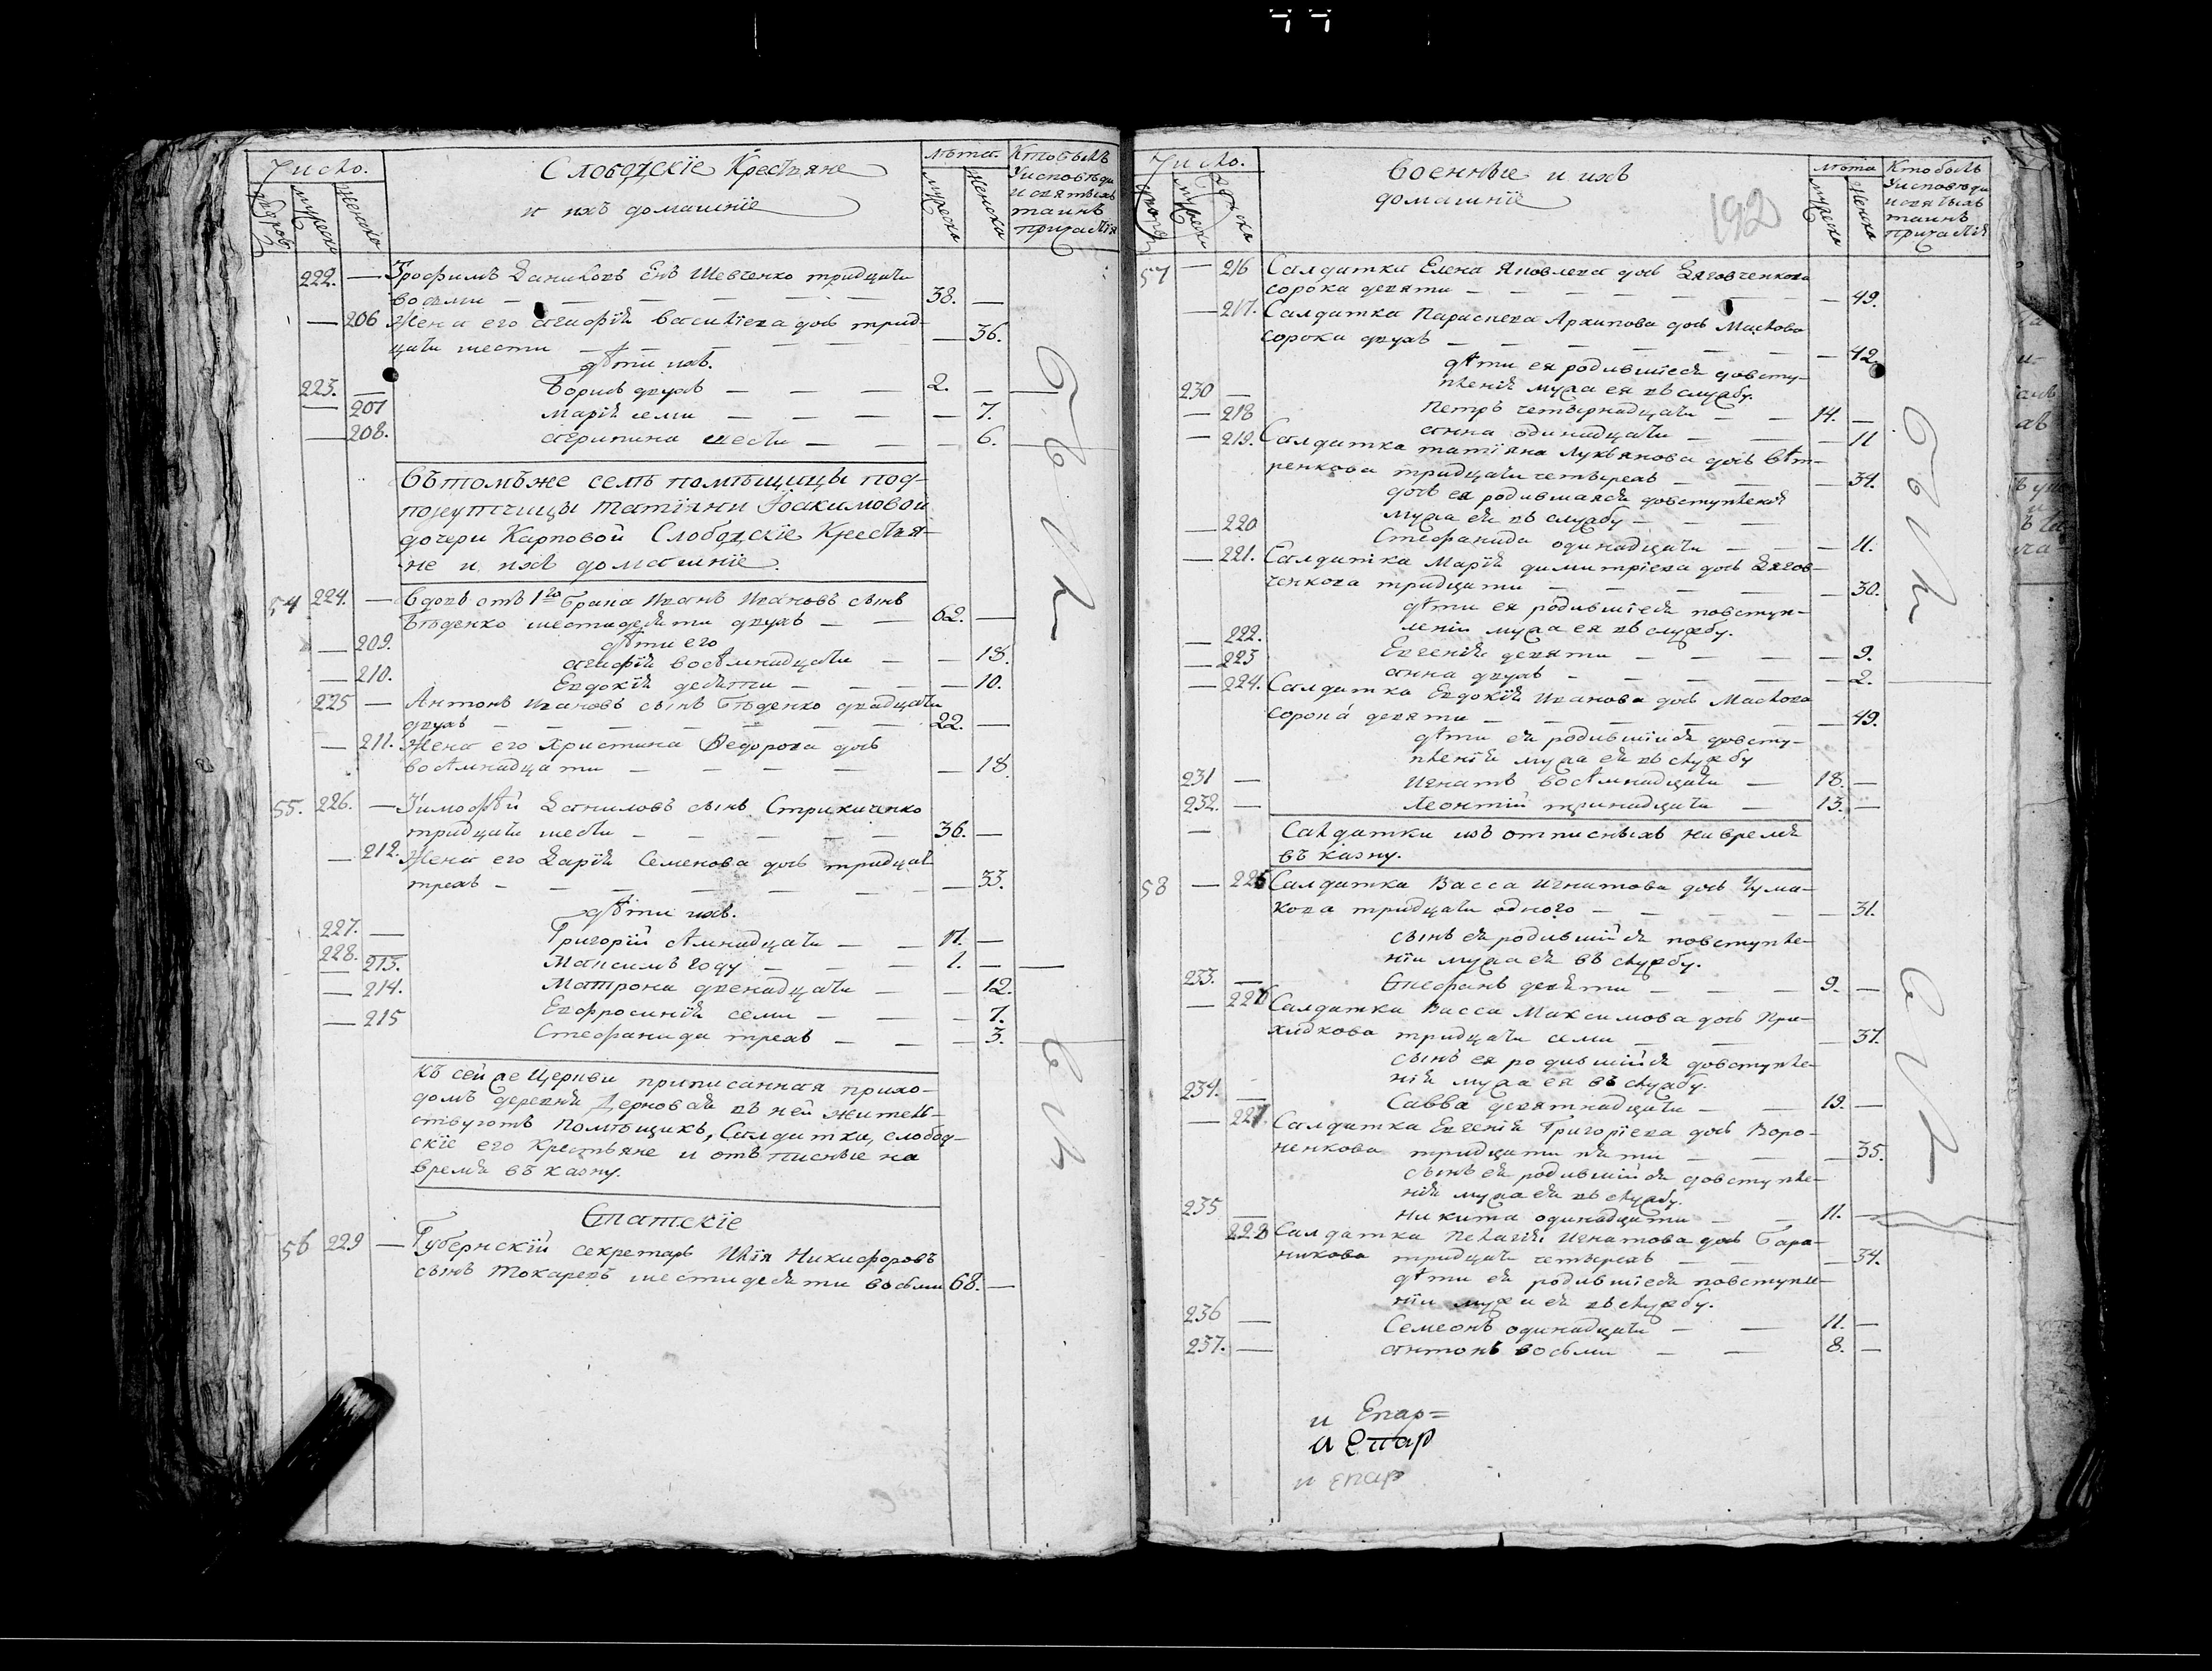 Число.
Слободскіе Крестьяне
и ихъ домашніе
лѣта.
Кто былъ
У исповѣди
и святыхъ
таинъ
причастія
дворовъ
мужеска
женска
мужеска
женска
222. — Трофимъ Даниловъ Снъ Шевченко тридцати
восьми — 38. —
— 206 Жена его агафія василіева дочь трид-
цати шести — 36.
дѣти ихъ.
223. — Борисъ двухъ — 2. —
— 207 марія семи — 7.
— 208. агрипина шести — 6.
Въ томъ же селѣ помѣщицы под-
порутчицы татіяни Іоакимовой
дочери Карповой Слободскіе Крестья-
не и ихъ домашніе.
54 224. — вдовъ отъ 1го брака Иванъ Ивановъ сынъ
Бѣденко шестидесяти двухъ — 62. —
дѣти его
— 209. агафія восѣмнадцати — 18.
— 210. Евдокія десяти — 10.
225 — Антонъ Ивановъ сынъ Бѣденко двадцати
двухъ — 22. —
— 211. Жена его Христина Федорова дочь
восѣмнадцати — 18.
55. 226. — Тимофѣй Даниловъ сынъ Стрижиченко
тридцати шести — 36. —
— 212. Жена его Дарія Семенова дочь тридцати
трехъ — 33.
дѣти ихъ.
227. — Григорій сѣмнадцати — 17. —
228. — Максимъ году — 1. —
— 213. Матрона двенадцати — 12.
— 214. Евфросинія семи — 7.
— 215 Стефанида трехъ — 3.
Къ сей же Церкви приписанная прихо-
домъ деревня Дерновая въ ней жител-
ствуютъ помѣщикъ, Салдатки, слобод-
скіе его крестьяне и отъписные на
время въ казну.
Статскіе
56 229 — Губернскій секретарь Илія Никифоровъ
сынъ Токаревъ шестидесяти восьми 68. —
Число.
военные и ихъ
домашніе
192
лѣта
Кто былъ
У исповѣди
и святыхъ
таинъ
причастія
мужеска
женска
57 — 216 Салдатка Елена Яковлева дочь Дяговченкова
сорока девяти — 49.
— 217. Салдатка Параскева Архипова дочь Маслова
сорока двухъ — 42.
дѣти ея родившіеся довсту-
пленія мужа ея въ службу.
230 — Петръ четырнадцати — 14. —
— 218 анна одинадцати — 11
— 219. Салдатка татіяна Лукьянова дочь вѣт-
ренкова тридцати четырехъ — 34.
дочь ея родившаяся довступленія
мужа ея въ службу —
— 220 Стефанида одинадцати — 11.
— 221. Салдатка Марія димитріева дочь Дягов-
ченкова тридцати — 30.
дѣти ея родившіеся повступ-
леніи мужа ея въ службу.
— 222. Евгенія девяти — 9.
— 223 анна двухъ — 2.
— 224. Салдатка Евдокія Иванова дочь Маслова
сорока девяти — 49.
дѣти ея родившіися довсту-
пленія мужа ея въ службу
231 — Игнатъ восѣмнадцати — 18. —
232. — Леонтій тринадцати — 13. —
Салдатки изъ отписныхъ на время
въ казну.
58 — 225 Салдатка Васса игнатова дочь Чума-
кова тридцати одного — 31.
сынъ ея родившійся повступле-
ніи мужа ея въ службу.
233. — Стефанъ девяти — 9. —
— 226 Салдатка Васса Максимова дочь При-
ходкова тридцати семи — 37.
сынъ ея родившійся довступле-
нія мужа ея въ службу.
234. — Савва девятнадцати — 19. —
— 227. Салдатка Евгенія Григоріева дочь Воро-
ненкова тридцати пяти — 35.
сынъ ея родившійся довступле-
нія мужа ея въ службу.
235 — никита одинадцати — 11. —
228 Салдатка Пелагія Игнатова дочь Бара-
никова тридцати четырехъ — 34.
дѣти ея родившіеся повступле-
ніи мужа ея въ службу.
236 — Семеонъ одинадцати — 11. —
237. — антонъ восьми — 8. —
и Епар=
и Епар
и епар